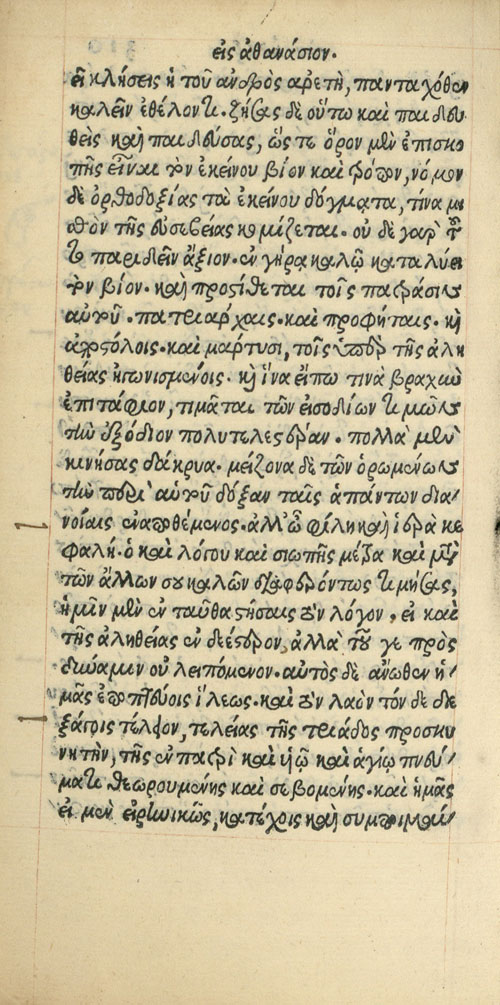 εἰς ἀθανάσιον.
ἐκκλήσεις ἡ τοῦ ἀνδρὸς ἀρετὴ, πανταχόθεν
καλεῖν ἐθέλοντι. ζήσας δὲ οὕτω καὶ παιδευ
θεὶς καὶ παιδεύσας, ὥστε ὅρον μὲν ἐπισκο
πῆς εἶναι τὸν ἐκείνου βίον καὶ τρόπον, νόμον
δὲ ὀρθοδοξίας τὰ ἐκείνου δόγματα, τίνα μι
σθὸν τῆς εὐσεβείας κομίζεται. οὐδὲ γὰρ τοῦ
το παριδεῖν ἄξιον. ἐν γήρᾳ καλῷ καταλύει
τὸν βίον. καὶ προστίθεται τοῖς πατράσιν
αὐτοῦ. πατριάρχαις. καὶ προφήταις. καὶ
ἀποστόλοις. καὶ μάρτυσι, τοῖς ὑπὲρ τῆς ἀλη
θείας ἠγωνισμένοις. καὶ ἵνα εἴπω τινὰ βραχὺν
ἐπιτάφιον, τιμᾶται τῶν εἰσοδίων τιμῶν
τὴν ἐξόδιον πολυτελεστέραν. πολλὰ μὲν
κινήσας δάκρυα. μείζονα δὲ τῶν ὁρωμένων
τὴν περὶ αὐτοῦ δόξαν ταῖς ἁπάντων δια
νοίαις ἐναποθέμενος. ἀλλ' ὦ φίλη καὶ ἱερὰ κε
φαλή. ὁ καὶ λόγου καὶ σιωπῆς μέτρα καὶ μετὰ
τῶν ἄλλων σου καλῶν διαφερόντως τιμήσας,
ἡμῖν μὲν ἐνταῦθα στήσαις τὸν λόγον, εἰ καὶ
τῆς ἀληθείας ἐνδεέστερον, ἀλλὰ τοῦ γε πρὸς
δύναμιν οὐ λειπόμενον. αὐτὸς δὲ ἄνωθεν ἡ
μᾶς ἐποπτεύοις ἵλεως. καὶ τὸν λαὸν τόνδε δι
εξάγοις τέλειον, τελείας τῆς τριάδος προσκυ
νητὴν, τῆς ἐν πατρὶ καὶ υἱῷ καὶ ἁγίῳ πνεύ
ματι θεωρουμένης καὶ σεβομένης. καὶ ἡμᾶς
εἰ μὲν εἰρηνικῶς, κατέχοις καὶ συμποιμαί